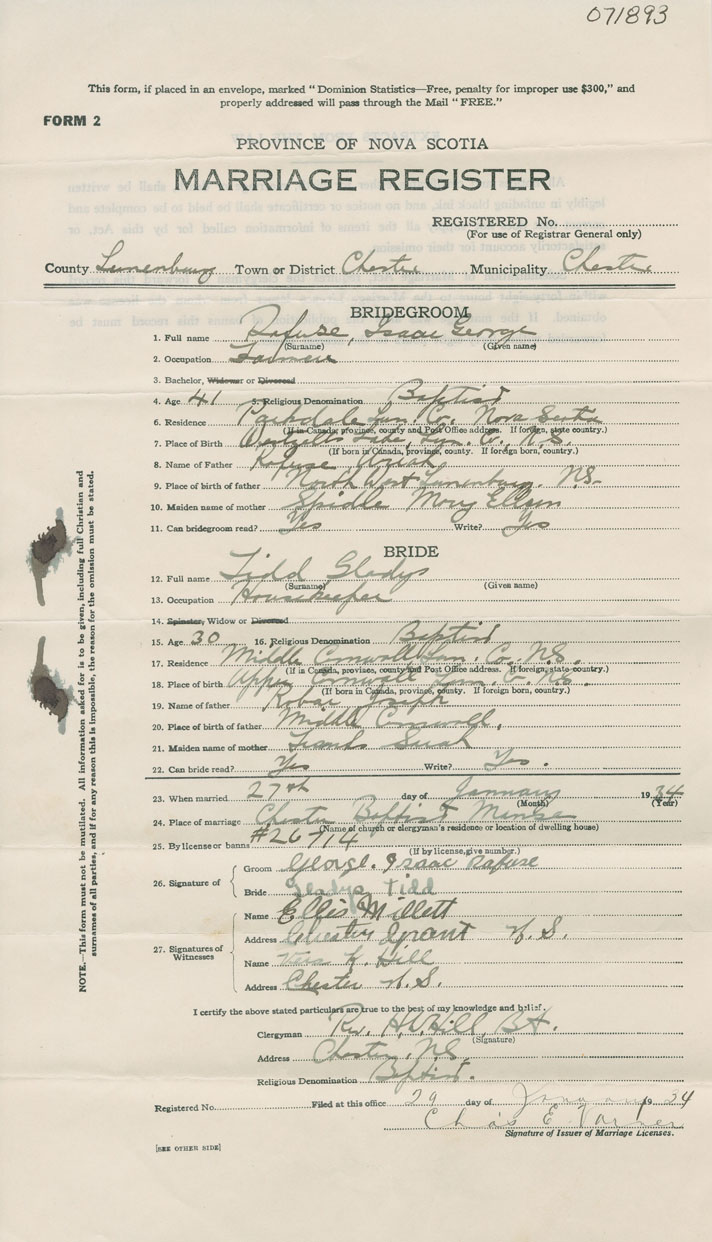 071893
This form, if placed in an envelope, marked "Dominion Statistics—Free, penalty for improper use $300," and
properly addressed will pass through the Mail "FREE."
FORM 2
PROVINCE OF NOVA SCOTIA
MARRIAGE REGISTER
REGISTERED No.
(For use of Registrar General only)
County Lunenburg Town or District Chester Municipality Chester
BRIDEGROOM
1. Full name Rafuse, Isaac George
(Surname) (Given name)
2. Occupation Farmer
3. Bachelor, Widower or Divorced
4. Age 41 5. Religious Denomination Baptist
6. Residence Parkdale Lun. Co. Nova Scotia
(If in Canada, province, county and Post Office address. If foreign, state country.)
7. Place of Birth Lake, Lun. Co. N.S.
(If born in Canada, province, county. If foreign born, country.)
8. Name of Father Rafuse
9. Place of birth of father North West Lunenburg. N.S.
10. Maiden name of mother Spidle Mary Ellen
11. Can bridegroom read? Yes Write? Yes
BRIDE
12. Full name Tidd Gladys
(Surname) (Given name)
13. Occupation Housekeeper
14. Spinster, Widow or Divorced
15. Age 30 16. Religious Denomination Baptist
17. Residence Middle Cornwall Lun. Co. N.S.
(If in Canada, province, county and Post Office address. If foreign, state country.)
18. Place of birth Upper Cornwall Lun. Co. N.S.
(If born in Canada, province, county. If foreign born, country.)
19. Name of father Joseph
20. Place of birth of father Middle Cornwall,
21. Maiden name of mother Sarah
22. Can bride read? Yes Write? Yes.
23. When married 27th day of January 1934
(Month) (Year)
24. Place of marriage Chester Baptist Manse
(Name of church or clergyman's residence or location of dwelling house)
25. By license or banns #26714
(If by license, give number.)
26. Signature of Groom George. Isaac Rafuse
Bride Gladys Tidd
27. Signatures of Witnesses Name Ellis Millett
Address Chester Grant N.S.
Name Vera K. Hill
Address Chester N.S.
I certify the above stated particulars are true to the best of my knowledge and belief.
Clergyman Rev. H. Hill,
(Signature)
Address Chester, N.S.
Religious Denomination Baptist.
Registered No. Filed at this office 29 day of January 1934
Chas E
Signature of Issuer of Marriage Licenses.
[SEE OTHER SIDE]
NOTE.—This form must not be mutilated. All information asked for is to be given, including full Christian and
surnames of all parties, and if for any reason this is impossible, the reason for the omission must be stated.